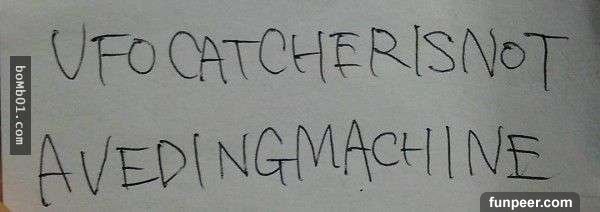 UFO CATCHER IS NOT
A VEDING MACHINE
bomb01.com
funpeer.com